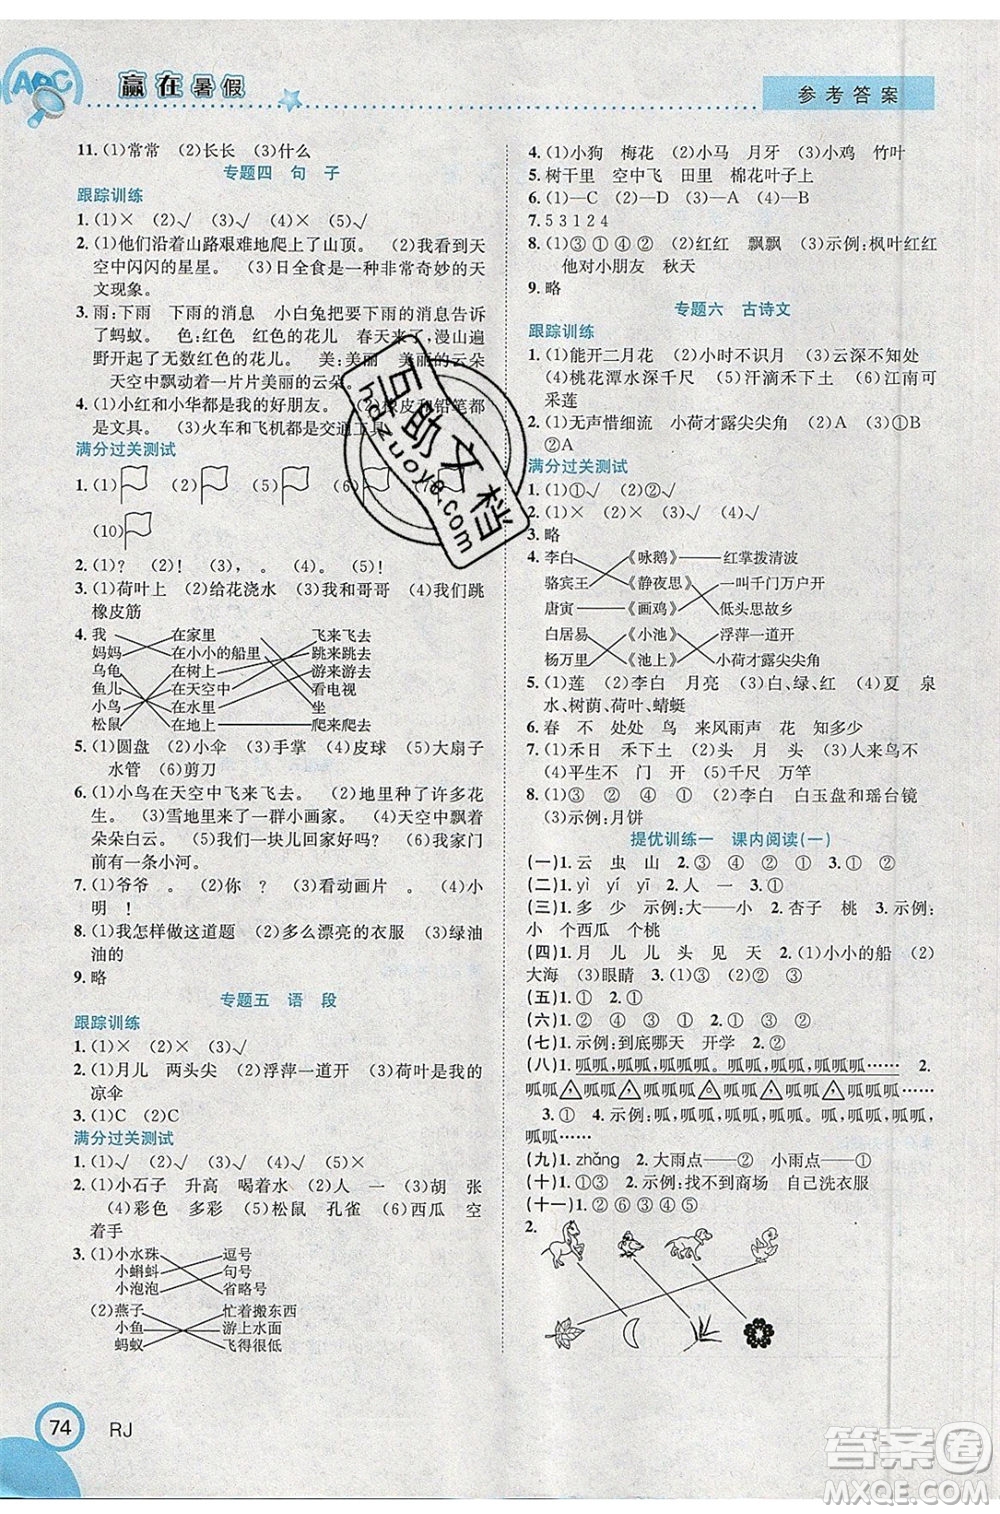 ABC
赢在暑假
参考答案
11.(1)常常 (2)长长 (3)什么
专题四 句 子
跟踪训练
1.(1)× (2)√ (3)√ (4)× (5)√
2.(1)他们沿着山路艰难地爬上了山顶。 (2)我看到天
空中闪闪的星星。 (3)日全食是一种非常奇妙的天
文现象。
3.雨:下雨 下雨的消息 小白兔把要下雨的消息告诉
了蚂蚁。 色:红色 红色的花儿 春天来了,漫山遍
野开了无数红色的花儿。 美:美丽 美丽的云朵
天空中飘动着一片片美丽的云朵。
4.(1)小红和小华都是我的好朋友。 (2)橡皮和铅笔都
是文具。 (3)火车和飞机都是交通工具。
满分过关测试
1.(1) (2) (5) (6) (7)
(10)
2.(1)? (2)! (3), 。 (4)! (5)?
3.(1)荷叶上 (2)给花浇水 (3)我和哥哥 (4)我们跳
橡皮筋
4.我 在家里 飞来飞去
妈妈 在小小的船里 跳来跳去
乌龟 在树上 游来游去
鱼儿 在天空中 看电视
小鸟 在水里 坐
松鼠 在地上 爬来爬去
5.(1)圆盘 (2)小伞 (3)手掌 (4)皮球 (5)大扇子
水管 (6)剪刀
6.(1)小鸟在天空中飞来飞去。 (2)地里种了许多花
生。 (3)雪地里来了一群小画家。 (4)天空中飘着
朵朵白云。 (5)我们是一块儿去游玩的。 (6)我家门
前有一条小河。
7.(1)爷爷 。 (2)你 ? (3)看动画片 。 (4)小
明 !
8.(1)我怎样做这道题 (2)多么漂亮的衣服 (3)绿油
油的
9.略
专题五 语 段
跟踪训练
1.(1)× (2)× (3)√
2.(1)月儿 两头尖 (2)浮萍一道开 (3)荷叶是我的
凉伞
3.(1)C (2)C
满分过关测试
1.(1)√ (2)√ (3)√ (4)× (5)√
2.(1)小石子 升高 喝着水 (2)人 人 (3)胡 张
(4)彩色 多彩 (5)松鼠 孔雀 (6)西瓜 空
着手
3.(1)小水珠 逗号
小蝌蚪 句号
小泡泡 省略号
(2)燕子 忙着搬东西
小鱼 游上水面
蚂蚁 飞得很低
74 RJ
4.(1)小狗 梅花 (2)小马 月牙 (3)小鸡 竹叶
5.树干里 空中飞 田里 棉花叶子上
6.(1)—C (2)—D (3)—A (4)—B
7.5 3 1 2 4
8.(1)③ ① ④ ② (2)红红 飘飘 (3)示例:枫叶红红
他对小朋友 秋天
9.略
专题六 古诗文
跟踪训练
1.(1)能开二月花 (2)小时不识月 (3)云深不知处
(4)桃花潭水深千尺 (5)汗滴禾下土 (6)江南可
采莲
2.(1)无声惜细流 小荷才露尖尖角 (2)A (3)①B
②A
满分过关测试
1.(1)①√ (2)②√
2.(1)× (2)× (3)√ (4)√
3.略
4.李白 《咏鹅》 红掌拨清波
骆宾王 《静夜思》 一叫千门万户开
唐寅 《画鸡》 低头思故乡
白居易 《小池》 浮萍一道开
杨万里 《池上》 小荷才露尖尖角
5.(1)莲 (2)李白 月亮 (3)白、绿、红 (4)夏 泉
水、树荫、荷花、蜻蜓
6.春 不 处处 鸟 来风雨声 花 知多少
7.(1)禾日 禾下土 (2)头 月 头 (3)人来鸟不
(4)平生不 门户 (5)千尺 万竿
8.(1)① ② ③ ④ (2)李白 白玉盘和瑶台镜
(3)示例:月饼
提优训练一 课内阅读(一)
(一)1.云 虫 山 2.③ ④ ② ① 3.②
(二)1.yì yí yī 2.人 一 3.①
(三)1.多 少 示例:大——小 2.杏子 桃 示例:
小 个西瓜 个桃
(四)1.月 儿 儿 头 见 天 2.(1)小小的船 (2)
大海 (3)眼睛 3.(1)② (2)① (3)③
(五)1.① 2.①
(六)1.② ③ ④ ① 2.②
(七)1.示例:到底哪天 开学 2.②
(八)1.呱呱,呱呱,呱呱,呱呱,呱呱,呱呱…… 2.
呱呱 呱呱 呱呱 呱呱 呱呱 呱呱……
3.① 4.示例:呱呱,呱呱,呱呱,呱呱,呱呱,
呱呱……
(九)1.zhǎng 2.大雨点——② 小雨点——①
(十)1.①③ 2.示例:找不到商场 自己洗衣服
(十一)1.② ③ ④ ⑤
2.
互助文档
hdzuoye.com
答案圈
MXQE.COM